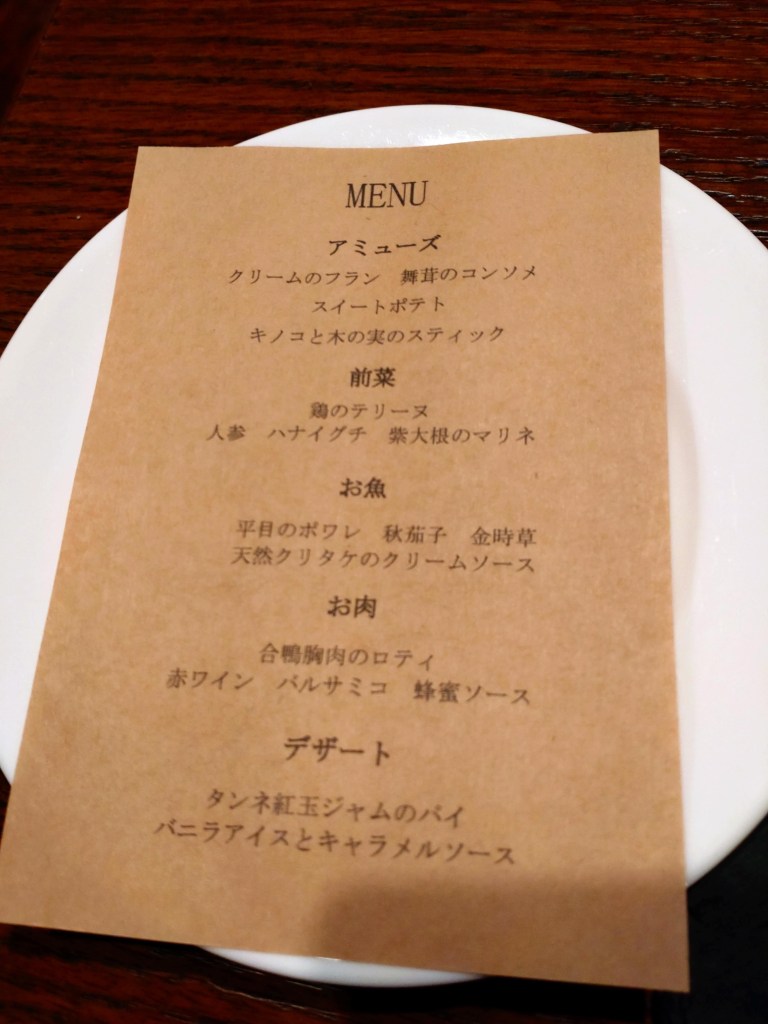 MENU
アミューズ
クリームのフラン　舞茸のコンソメ
スイートポテト
キノコと木の実のスティック
前菜
鶏のテリーヌ
人参　ハナイグチ　紫大根のマリネ
お魚
平目のポワレ　秋茄子　金時草
天然クリタケのクリームソース
お肉
合鴨胸肉のロティ
赤ワイン　バルサミコ　蜂蜜ソース
デザート
タンネ紅玉ジャムのパイ
バニラアイスとキャラメルソース